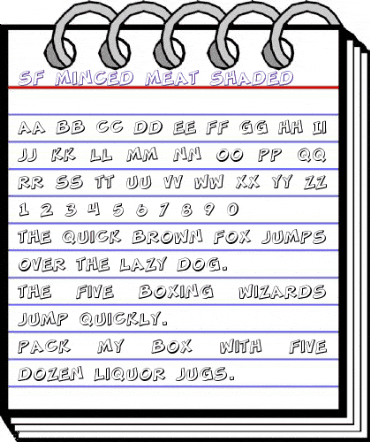 SF MINCED MEAT SHADED
AA BB CC DD EE FF GG HH II
JJ KK LL MM NN OO PP QQ
RR SS TT UU VV WW XX YY ZZ
1 2 3 4 5 6 7 8 9 0
THE QUICK BROWN FOX JUMPS
OVER THE LAZY DOG.
THE FIVE BOXING WIZARDS
JUMP QUICKLY.
PACK MY BOX WITH FIVE
DOZEN LIQUOR JUGS.